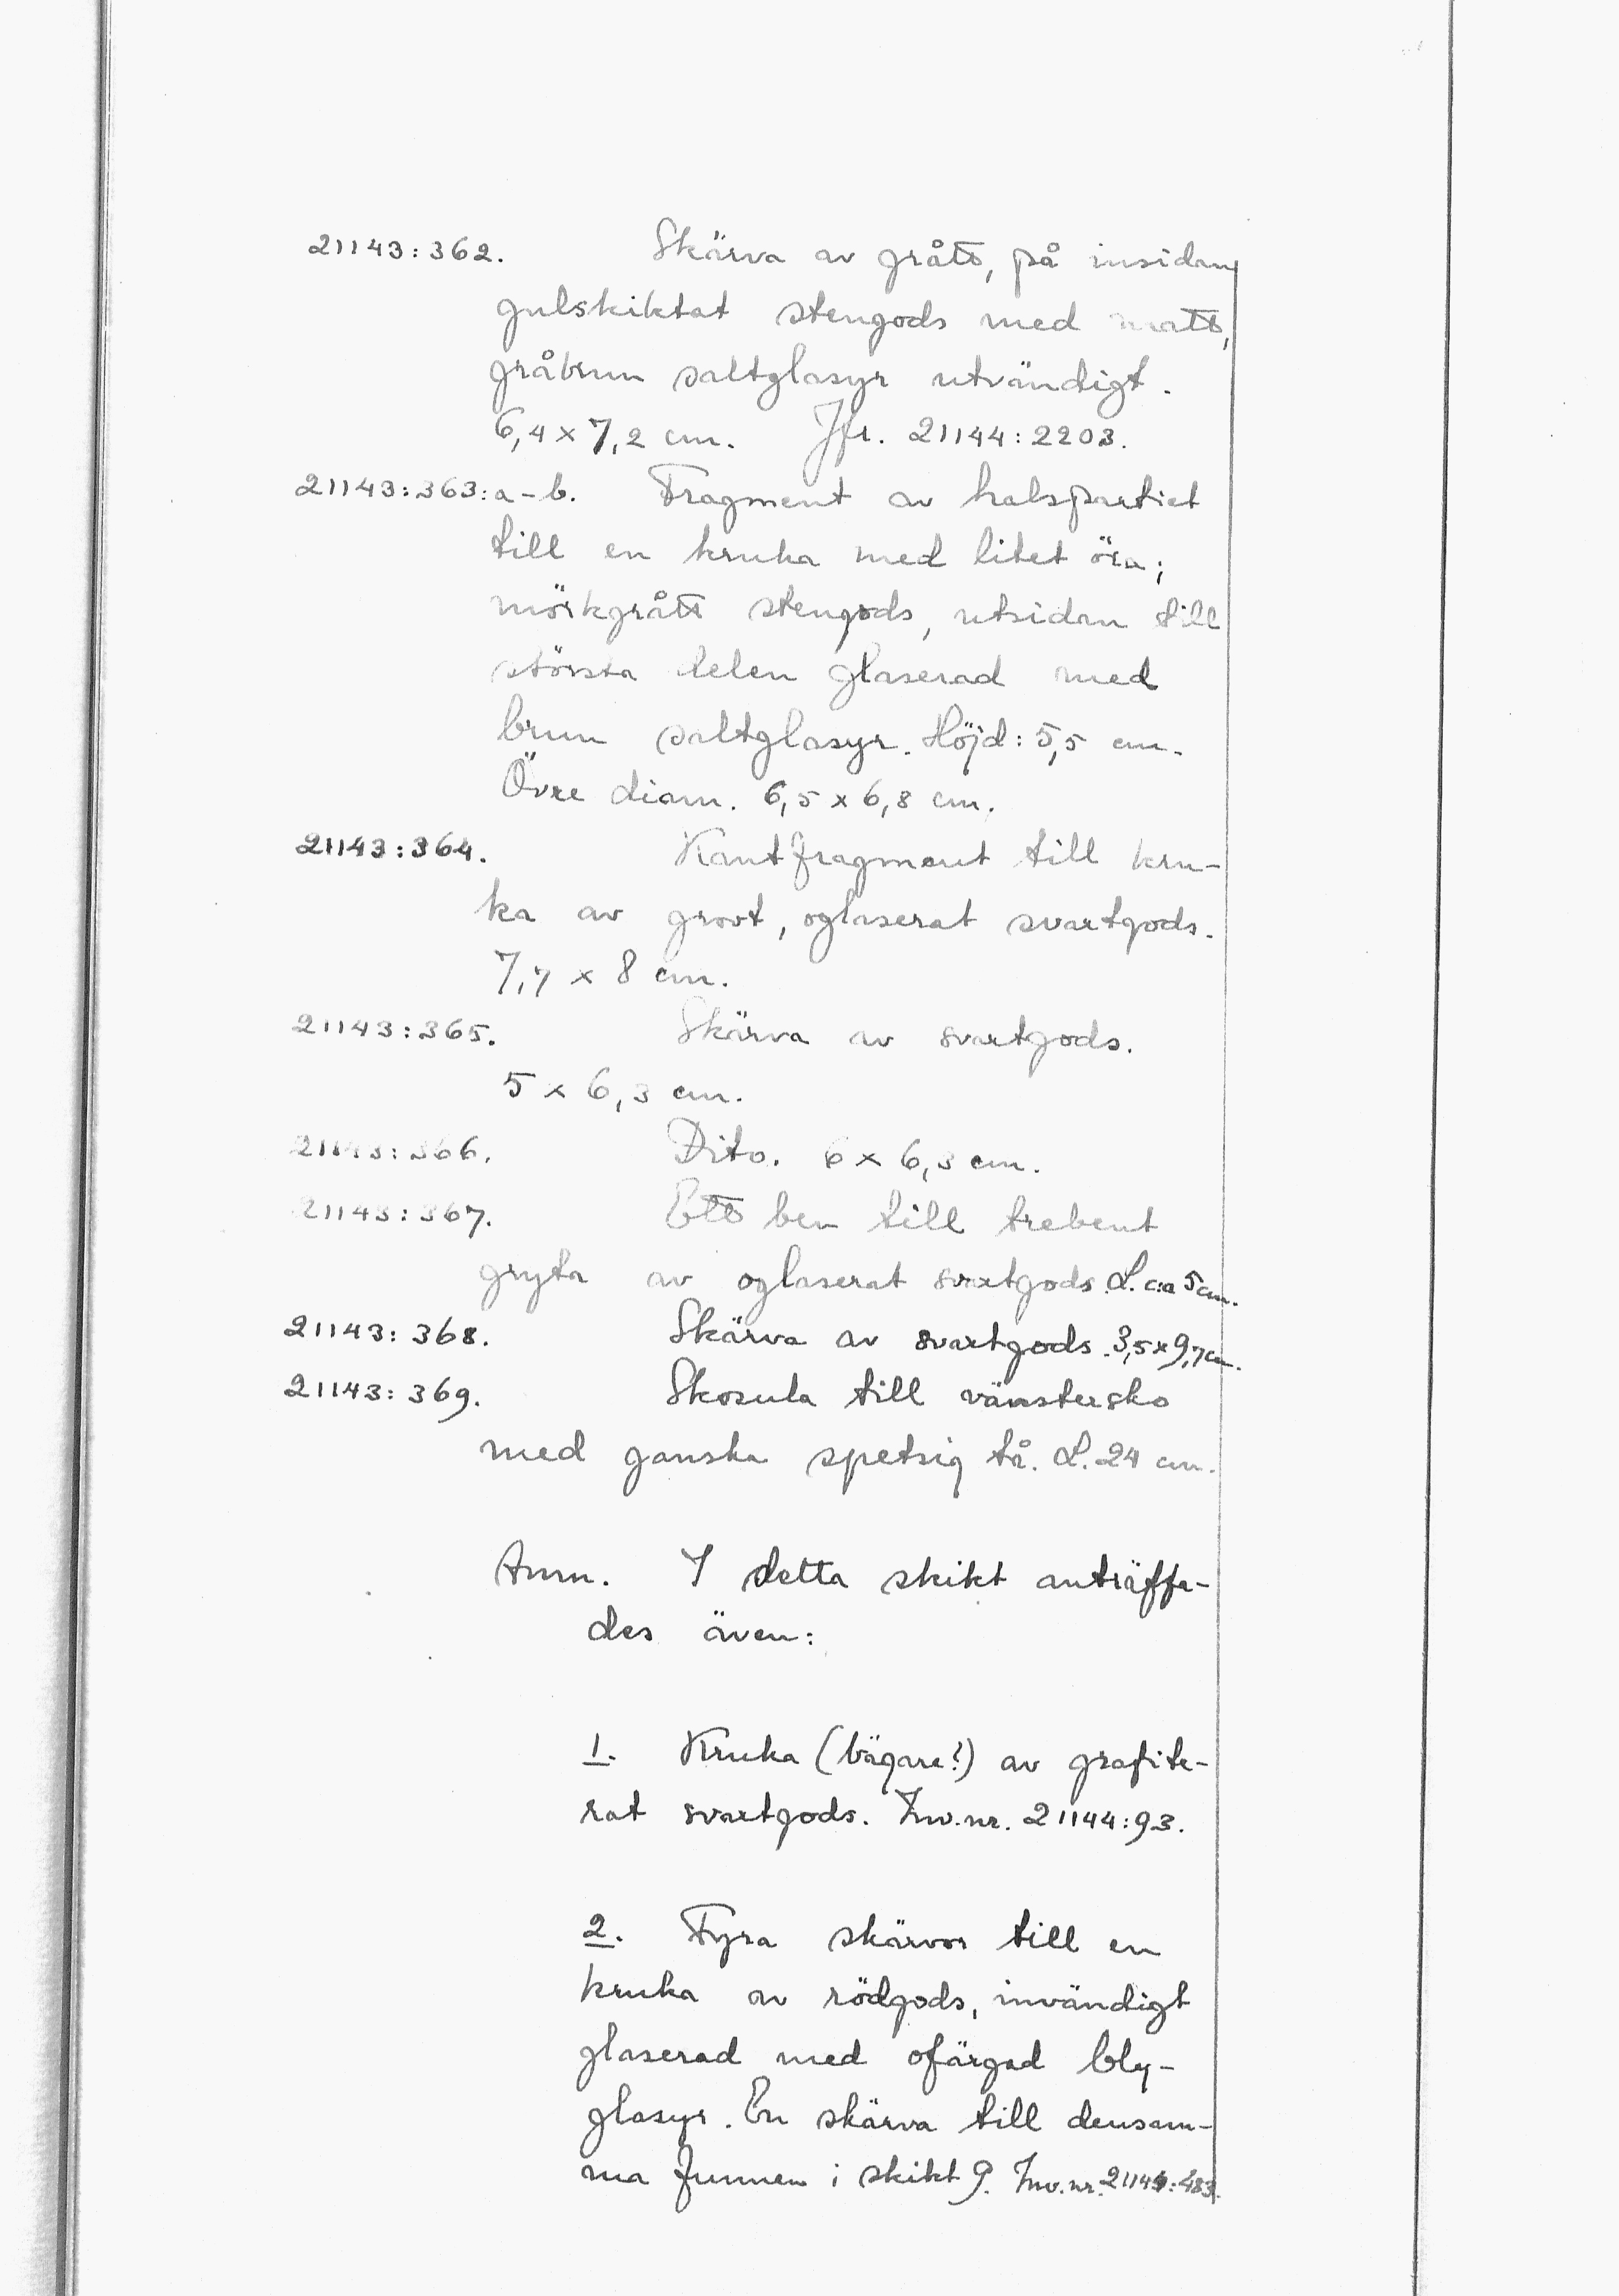 21143:362. Skärva av grått, på insidan
gulskiktat stengods med matt,
gråbrun saltglasyr utvändigt.
6,4 x 7,2 cm. Jfr. 21144:2203.
21143:363:a-b. Fragment av halspartiet
till en kruka med litet öra;
mörkgrått stengods, utsidan till
största delen glaserad med
brun saltglasyr. Höjd: 5,5 cm.
Övre diam. 6,5 x 6,8 cm.
21143:364. Kantfragment till kru-
ka av grovt, oglaserat svartgods.
7,7 x 8 cm.
21143:365. Skärva av svartgods.
5 x 6,3 cm.
21143:366. Dito. 6 x 6,3 cm.
21143:367. Ett ben till trebent
gryta av oglaserat svartgods. L. c:a 5 cm.
21143:368. Skärva av svartgods. 3,5 x 9,7 cm.
21143:369. Skosula till vänstersko
med ganska spetsig tå. L. 24 cm.
Anm. I detta skikt anträffa-
des även:
1. Kruka (bägare?) av grafite-
rat svartgods. Inv.nr. 21144:93.
2. Fyra skärvor till en
kruka av rödgods, invändigt
glaserad med ofärgad bly-
glasyr. En skärva till densam-
ma funnen i skikt 9. Inv.nr. 21144:483.